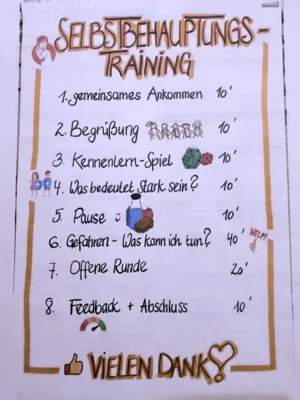 SELBSTBEHAUPTUNGS-
TRAINING
1. gemeinsames Ankommen 10'
2. Begrüßung 10'
3. Kennenlern-Spiel 10'
4. Was bedeutet Stark sein? 10'
5. Pause ü 10'
6. Gefahren - Was kann ich tun? 40' HELP!
7. Offene Runde 20'
8. Feedback + Abschluss 10'
VIELEN DANK!